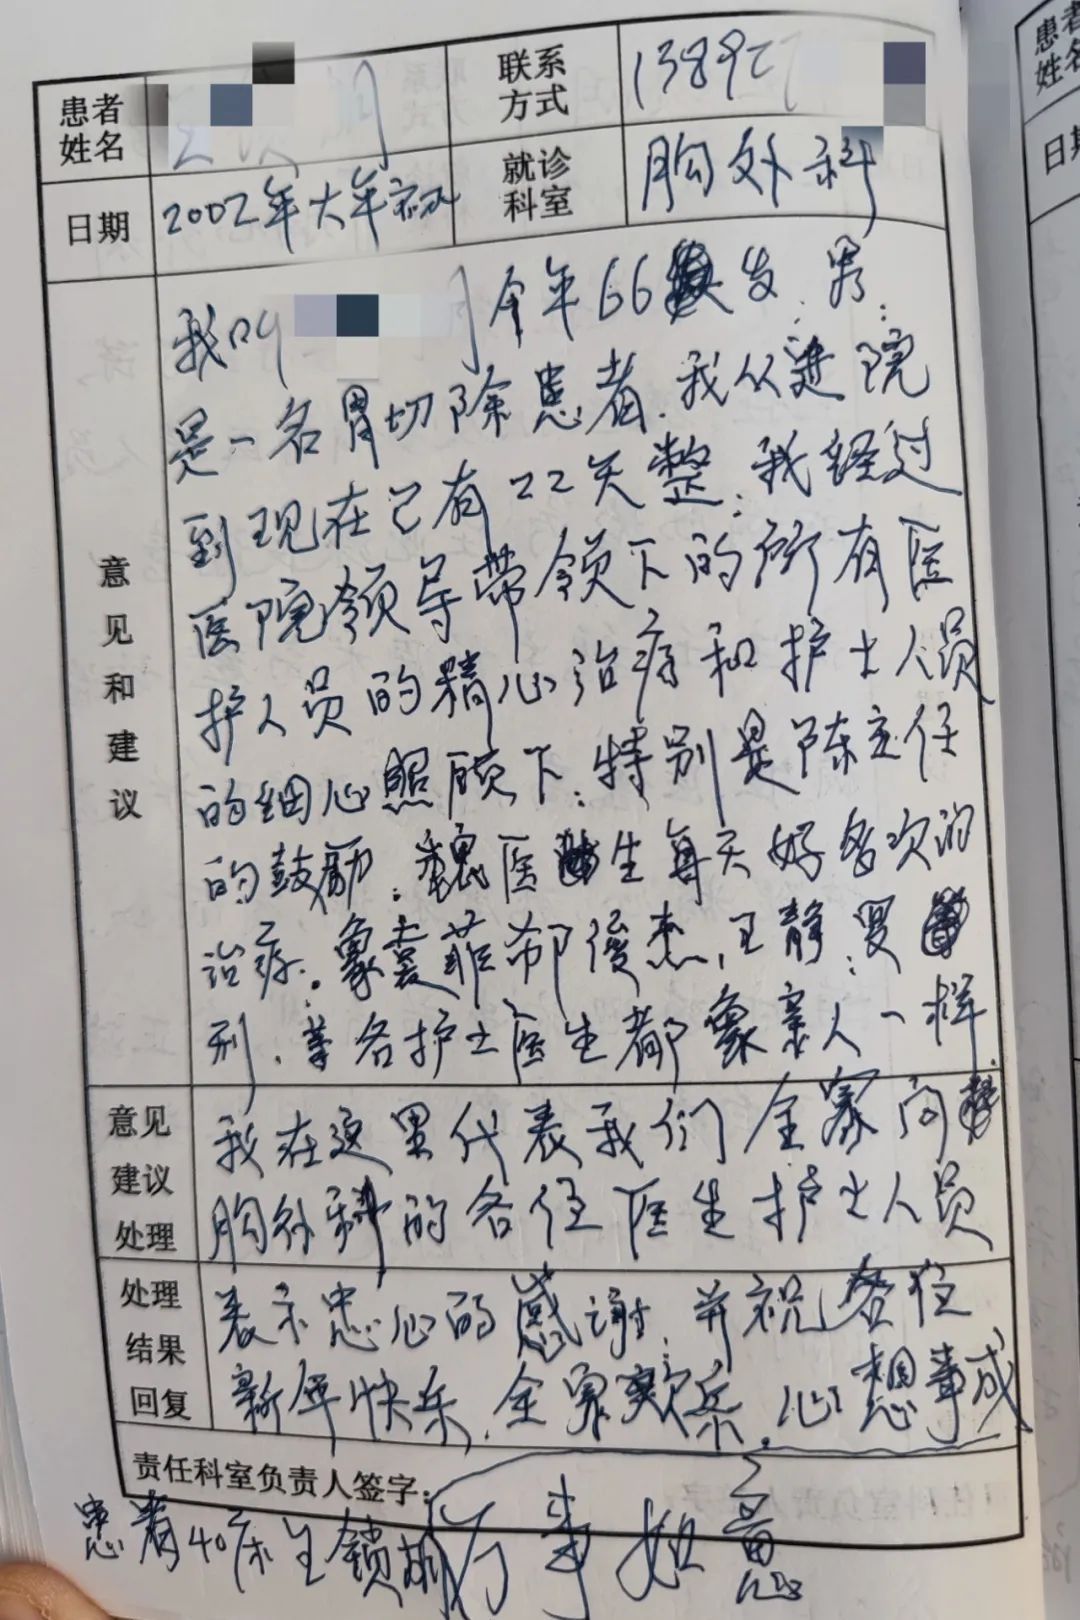 患者姓名
联系方式 13892
日期 2002年大年初
就诊科室 胸外科
意见和建议
我叫 今年66岁 男
是一名胃切除患者.我从进院
到现在己有22天整.我经过
医院领导带领下的所有医
护人员的精心治疗和护士人员
的细心照顾下.特别是陈主任
的鼓励.魏医生每天好多次的
治疗.象 菲 俊杰,王静.
各护士医生都象亲人一样
意见建议处理
我在这里代表我们全家向
胸外科的各位医生护士人员
处理结果回复
表示忠心的感谢.并祝各位
新年快乐.全家欢乐.心想事成
责任科室负责人签字:
万事如意
患者40床
患者姓名
日